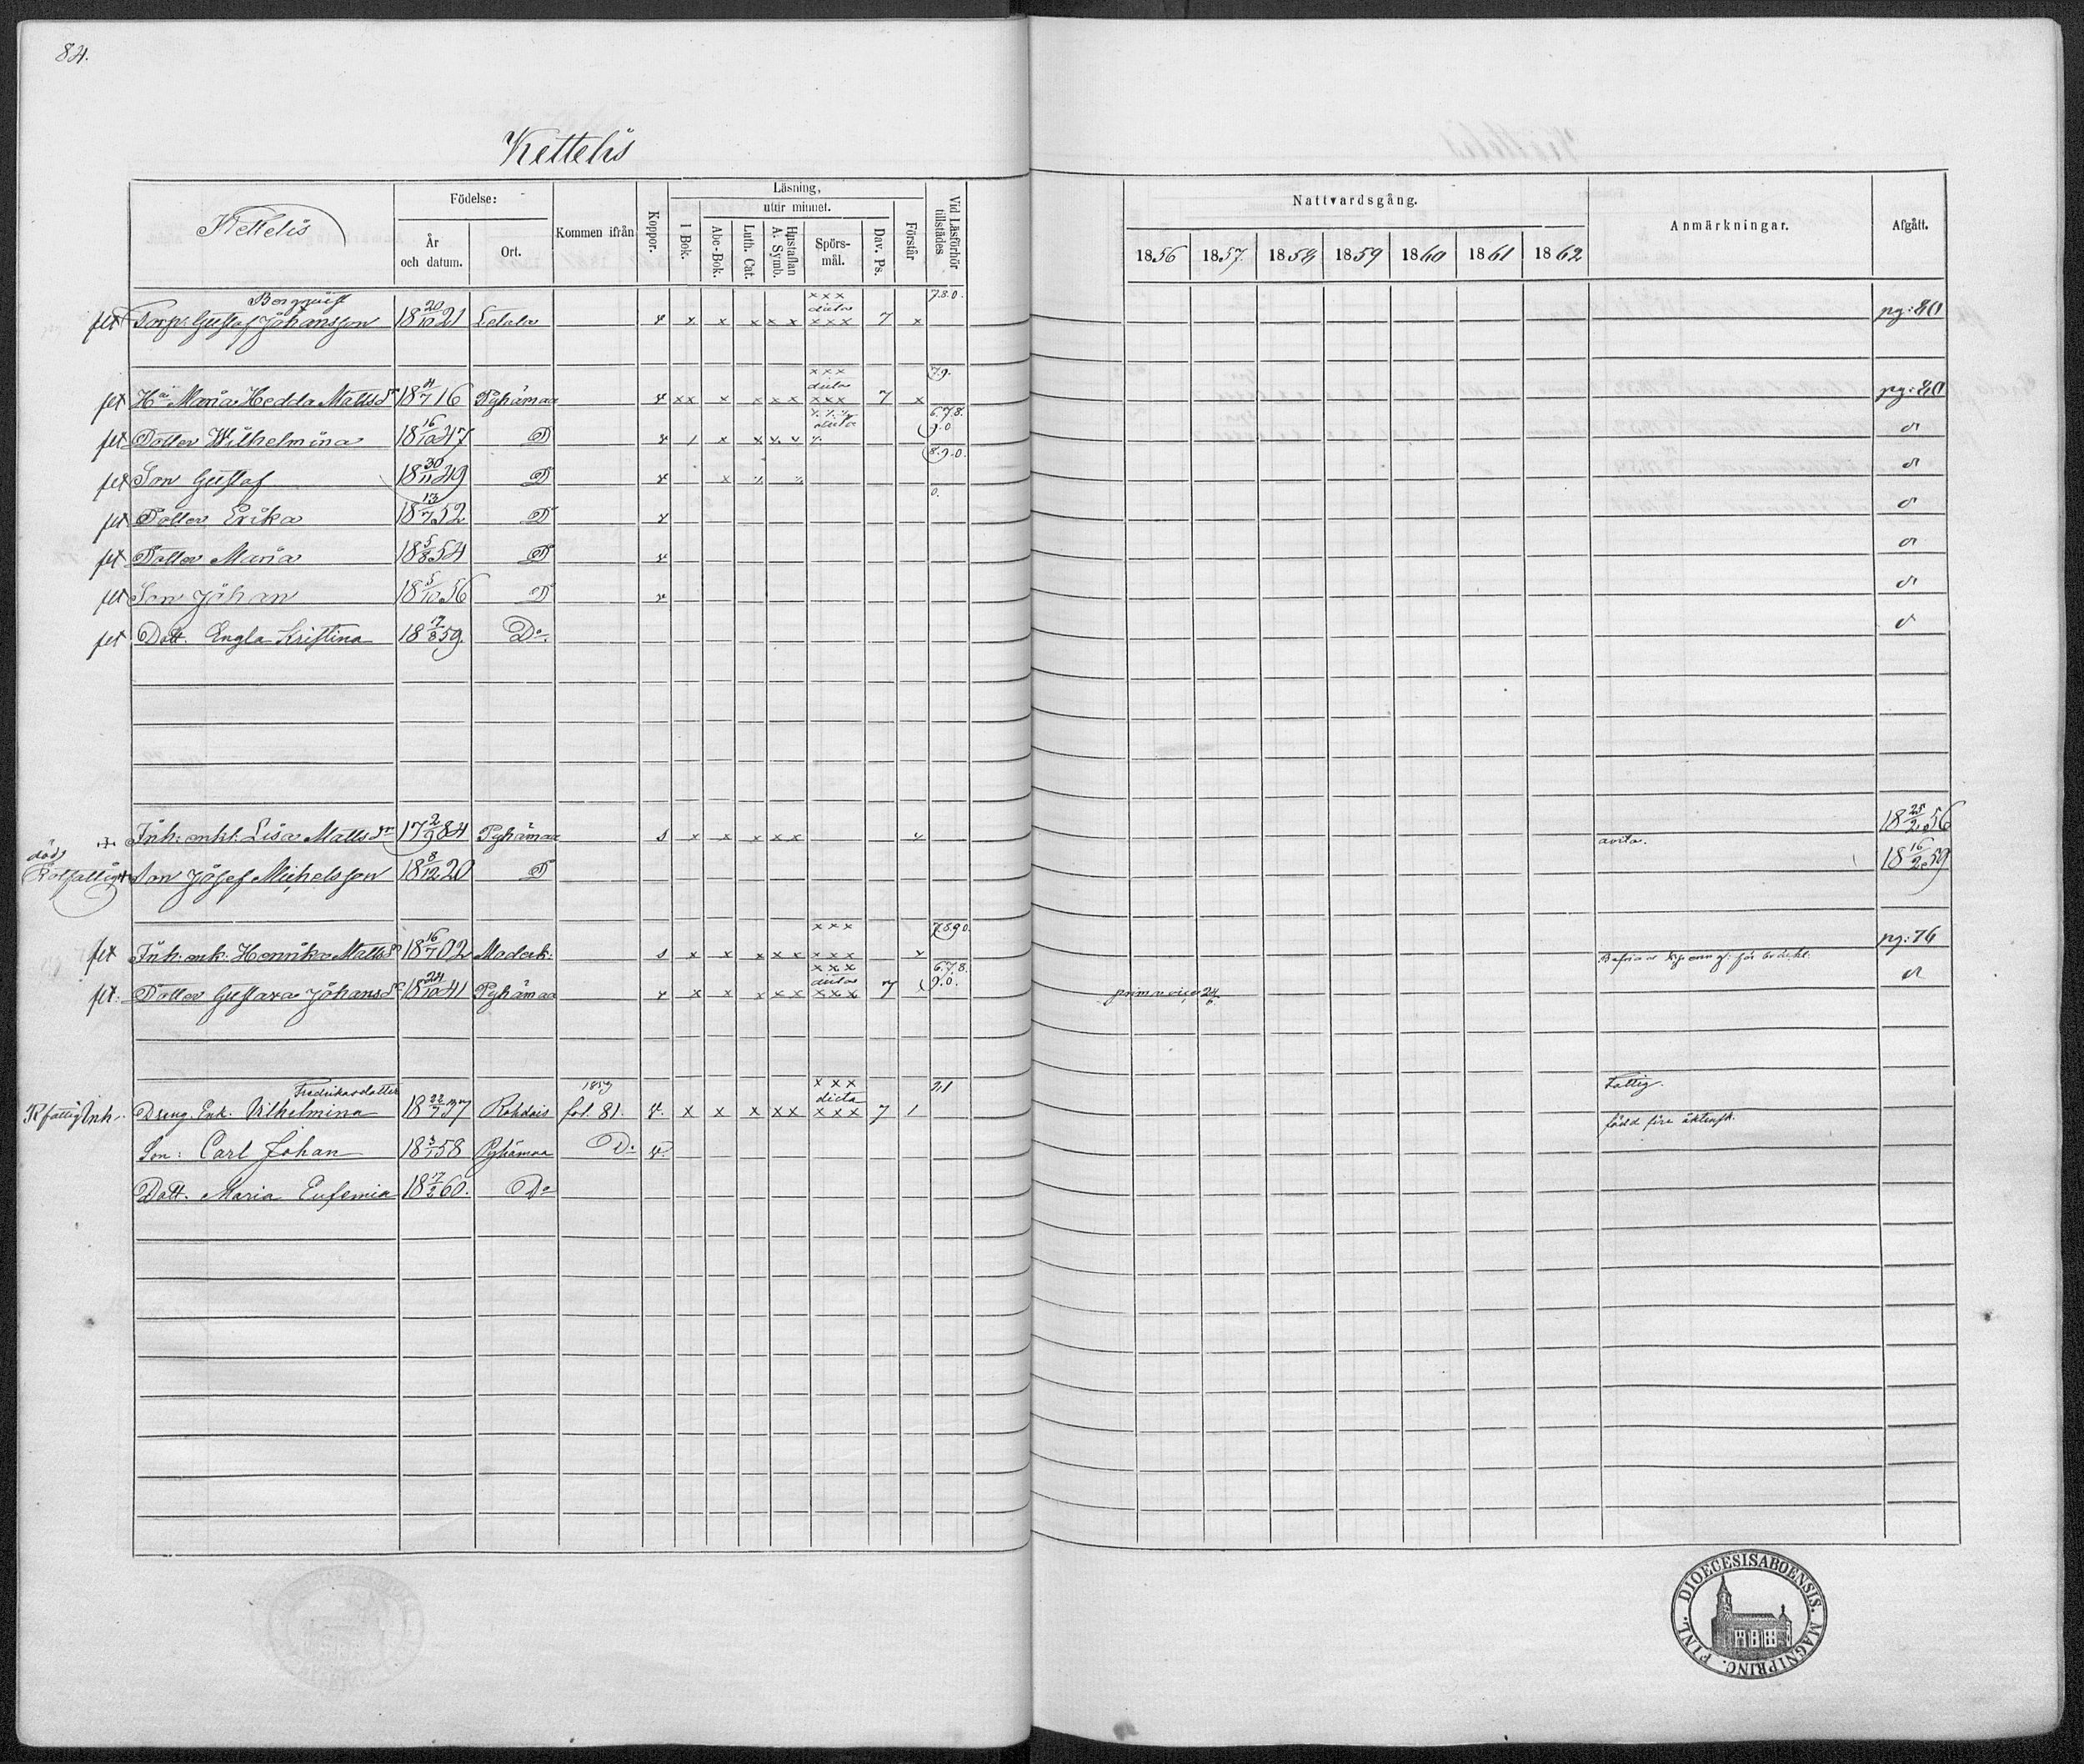 84.
Kettelis
Kettelis
Födelse:
År och datum.
Ort.
Kommen ifrån
Koppor.
Läsning,
utur minnet.
I Bok.
Abc-Bok.
Luth. Cat.
Hustaflan A. Symb.
Spörsmål.
Dav. Ps.
Förstår
Vid Läsförhör tillstädes
Nattvardsgång.
1856 1857. 1858 1859 1860 1861 1862
Anmärkningar.
Afgått.
Bergquist x x x 7.8.0.
flt Torp. Gustaf Johansson 18 20/10 21 Letala v x x x x x dicta x x x 7 x pg: 80
x x x 7.9.
flt Ha Maria Hedda Mattsdr 18 4/7 16 Pyhämaa v x x x x x x dicta x x x 7 x pg: 80
flt Dotter Wilhelmina 18 16/10 47 D v / x x v v 6.7.8. 9.0 d
flt Son Gustaf 18 30/11 49 D v x 8.9.0. d
flt Dotter Erika 18 13/7 52 D v 0. d
flt Dotter Maria 18 5/8 54 D v d
flt Son Johan 18 5/10 56 D v d
flt Dott. Engla Kristina 18 7/8 59. Do. d
Inh: enkl. Lisa Mattsdr 17 2/9 84 Pyhämaa s x x x x x v avita. 18 25/2 56
död
Rotfattig Son Josef Michelsson 18 8/12 20 D 18 16/2 59
x x x 7.8.9.0.
flt Inh: enk: Henrika Mattsd 18 16/7 02 Moderk: s x x x x x x x x v pg: 76
flt. Dotter Gustava Johansd 18 24/10 41 Pyhämaa v x x x x x x x x dicta x x x 7 6.7.8. 9.0. prima vice 24/6 d
Fredriksdotter 1859 x x x 2.1 Fattig.
Rfattig Inh. Dreng. Enk. Vilhelmina 18 22/7 37 Rohdais fol. 81. v. x x x x x dicta x x x 7 1 född före äktensk.
Son: Carl Johan 18 3/1 58 Pyhämaa Do v.
Dott. Maria Eufemia 18 17/2 60. Do
DIOECESIS ABOENSIS. MAGNI PRINC. FINL.